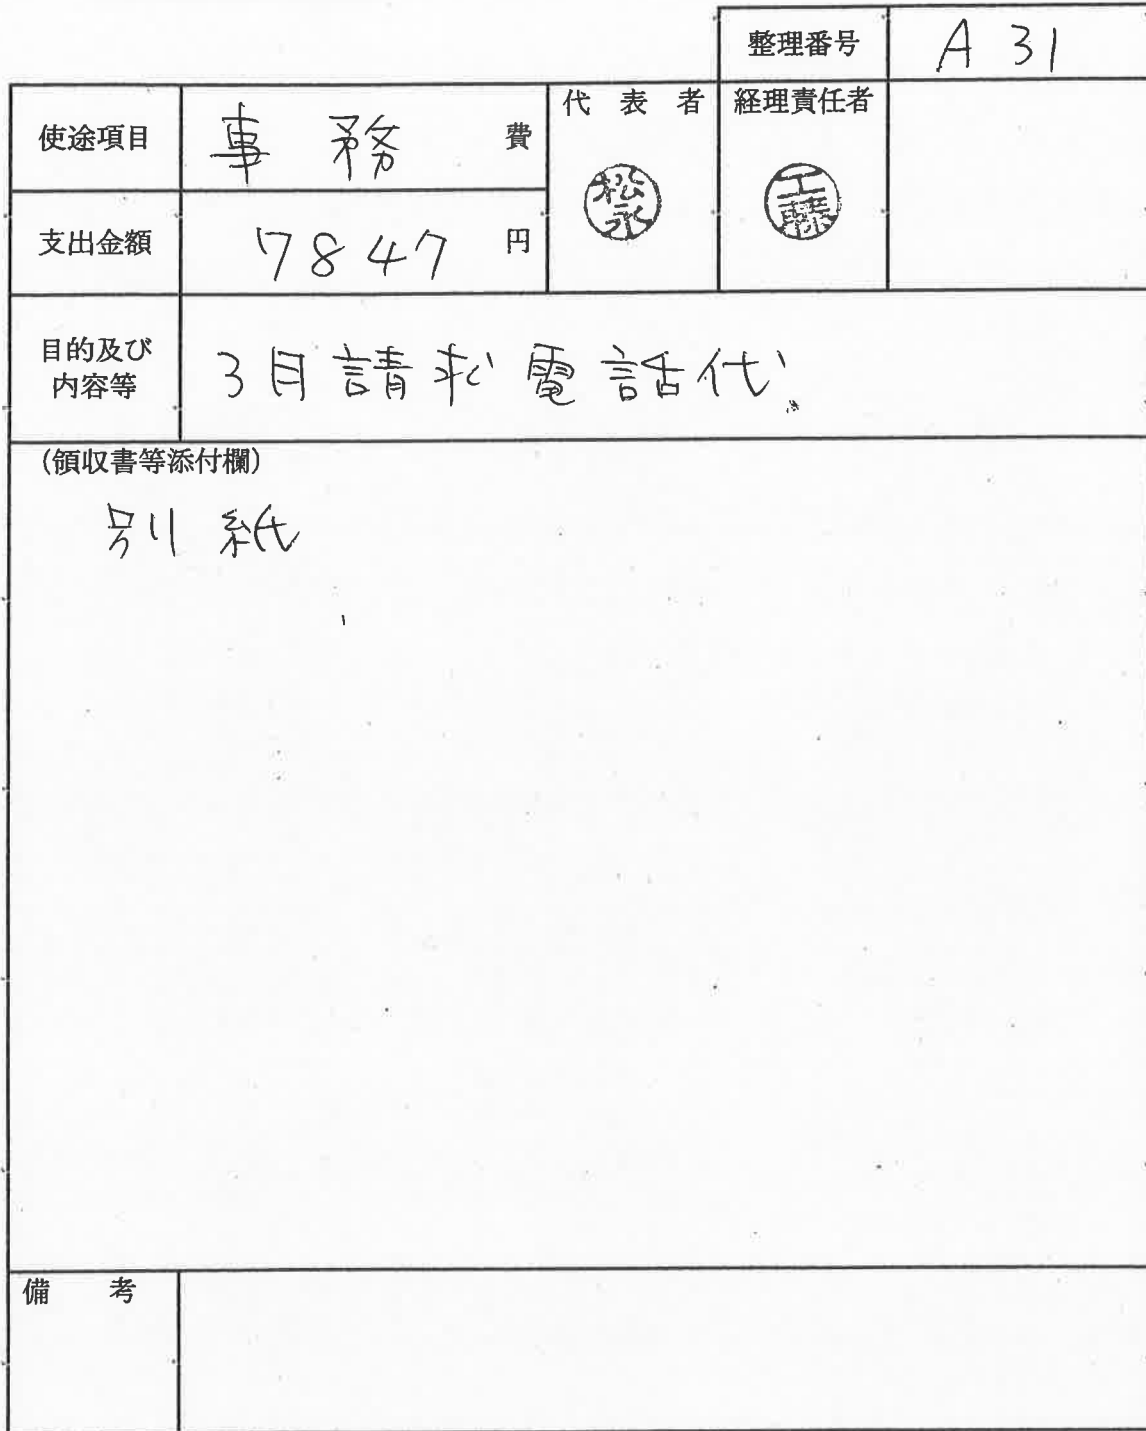 整理番号 A 31
使途項目 事務 費 代表者 経理責任者
松永 工藤
支出金額 7847 円
目的及び内容等 3月請求電話代
(領収書等添付欄)
別紙
備考